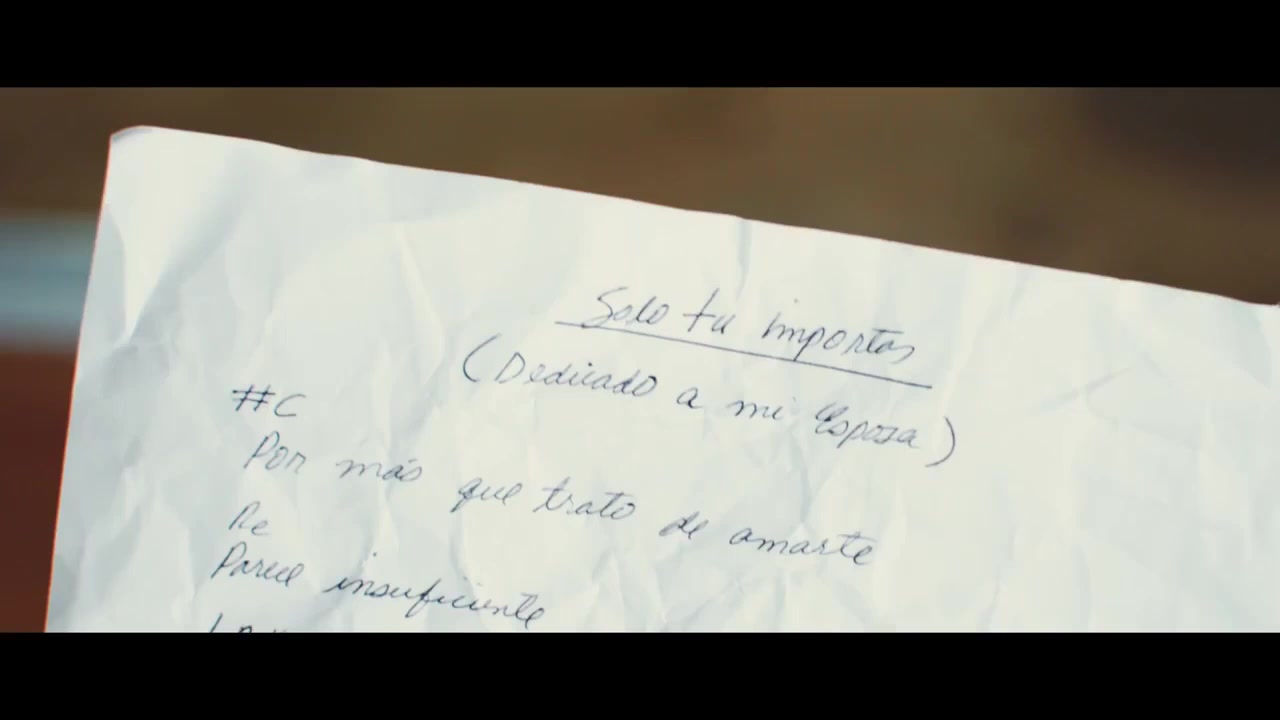 Solo tu importas
(Dedicado a mi Espoza)
#C
Por más que trato de amarte
Re
Parece insuficiente